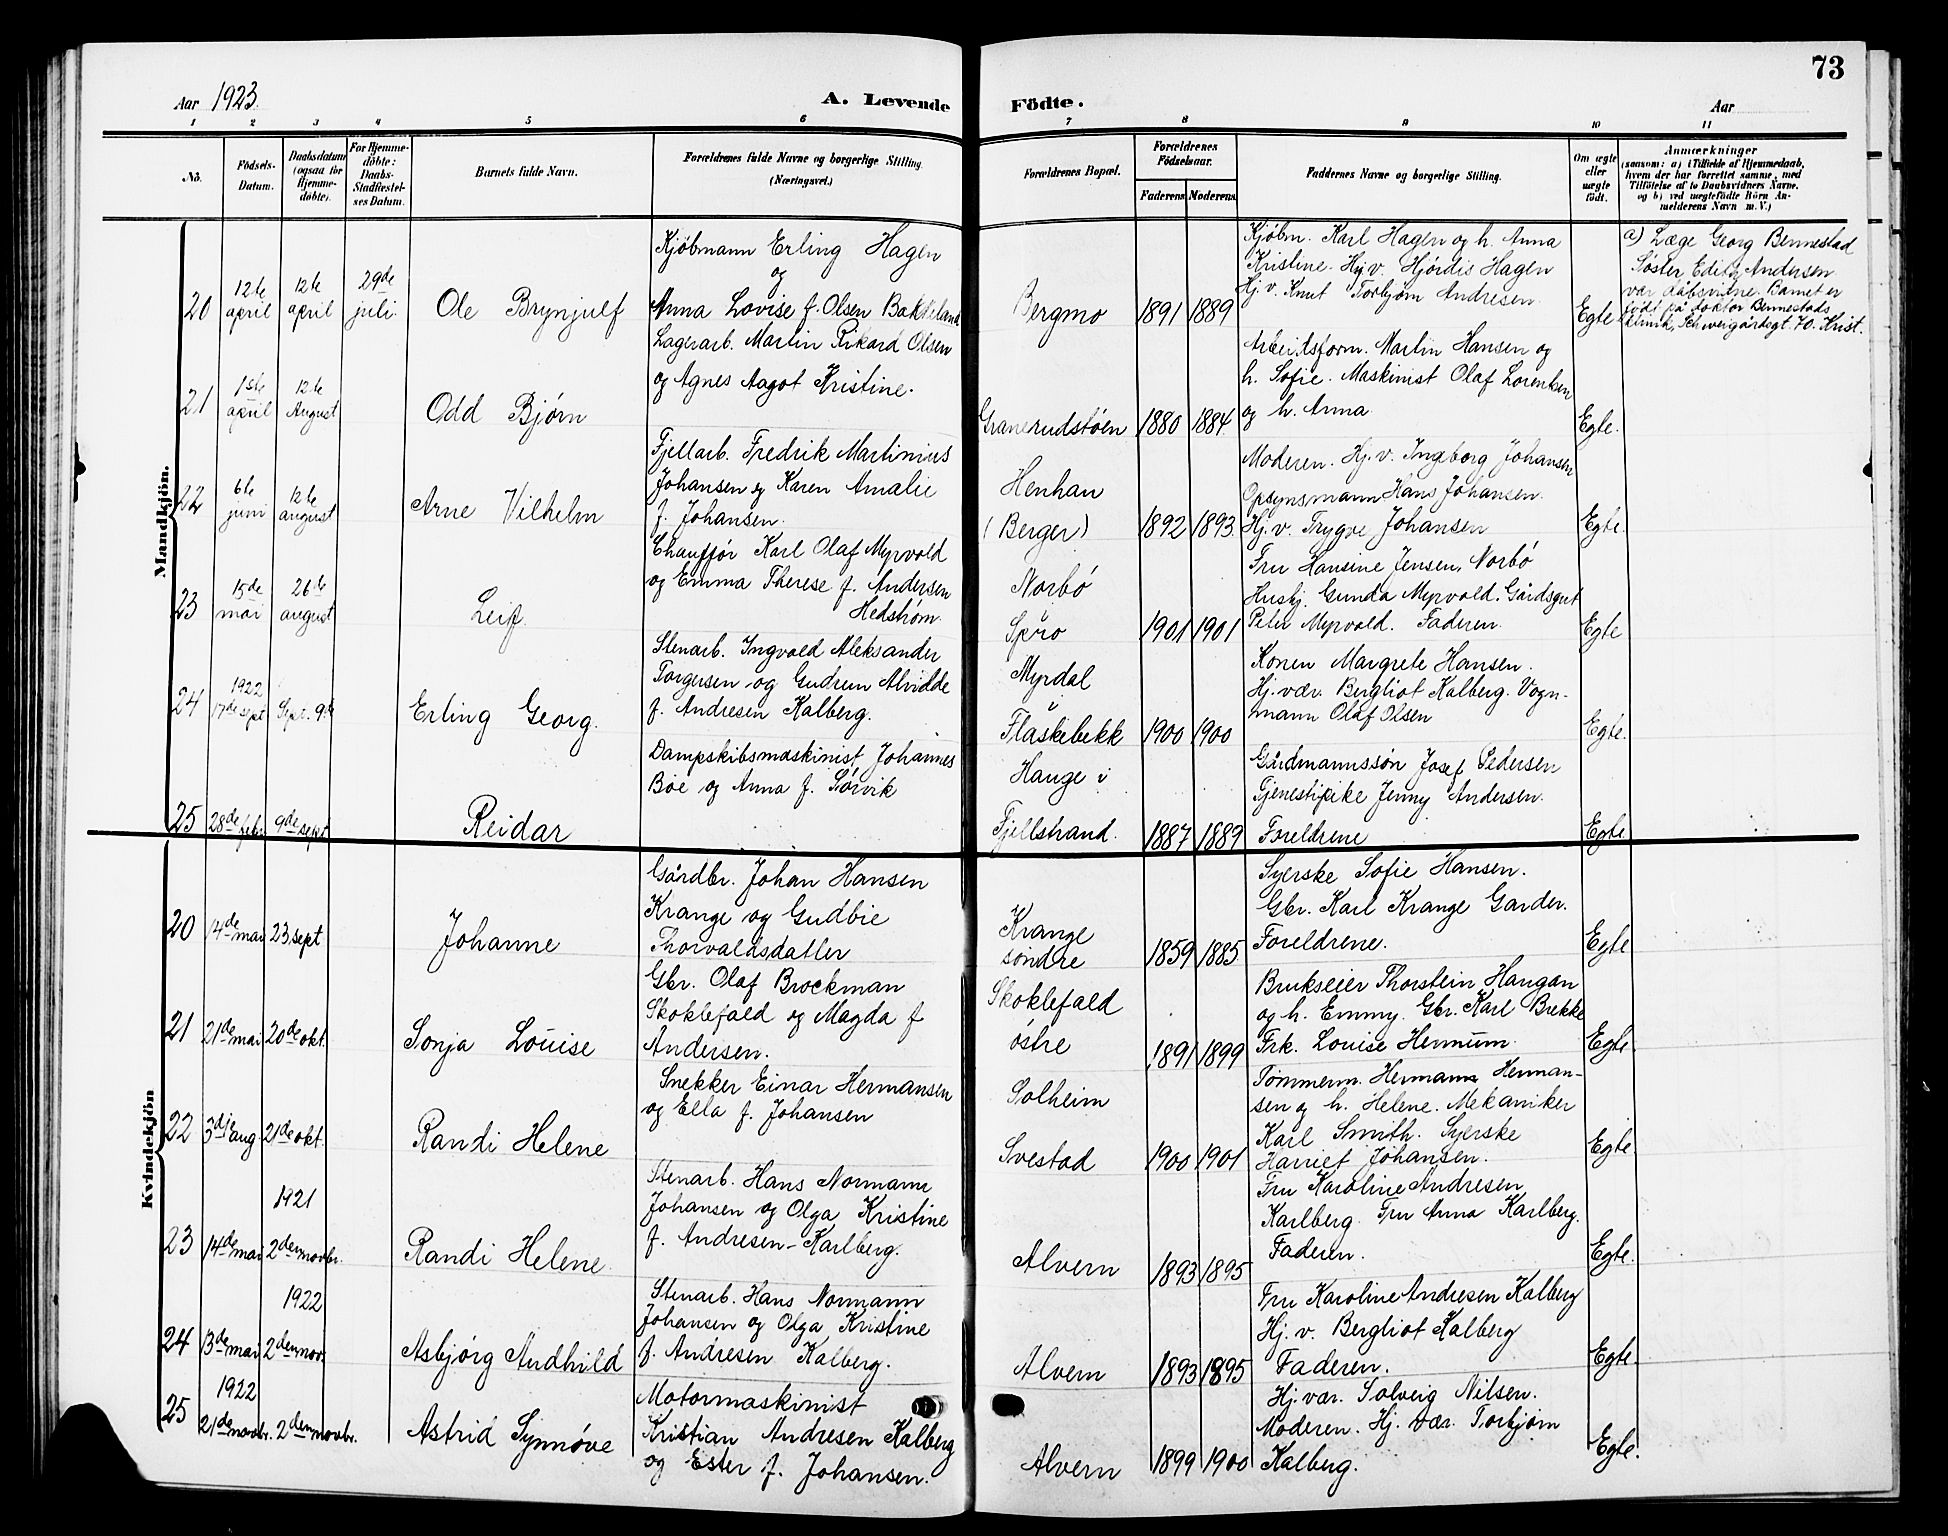 73
Aar 1923.
A. Levende Födte.
Aar
1 2 3 4 5 6 7 8 9 10 11
No.
Födsels-Datum.
Daabsdatum (ogsaa for Hjemme-döbte).
For Hjemme-döbte: Daabs-Stadfæstel-ses Datum.
Barnets fulde Navn.
Forældrenes fulde Navne og borgerlige Stilling. (Næringsvei.)
Forældrenes Bopæl.
Forældrenes Födselsaar.
Faderens Moderens
Faddernes Navne og borgerlige Stilling.
Om ægte eller uægte födt.
Anmærkninger
(saasom: a) i Tilfælde af Hjemmedaab,
hvem der har forrettet samme, med
Tilföielse af to Daabsvidners Navne.
og b) ved uægtefödte Börn An-
melderens Navn m. V.)
Mandkjön.
20 12te april 12te april 29de juli. Ole Brynjulf
Kjøbmann Erling Hagen
og
Anna Lovise f. Olsen Bakkeland
Bergmo 1891 1889
Kjøbm. Karl Hagen og h. Anna
Kristine. Hj. v. Hjørdis Hagen
Hj. v. Knut Torbjørn Andresen.
Egte
a) Læge Georg Bennestad
Søster Edith Andersen
var dåbsvidne. Barnet er
født på doktor Bennestads
klinik, Schweigårdsgt. 70. Krist.
21 1ste april 12te August Odd Bjørn
Lagerarb. Martin Rikard Olsen
og Agnes Aagot Kristine.
Granerudstøen 1880 1884
Arbeidsform. Martin Hansen og
h. Sofie. Maskinist Olaf Lorentsen
og h. Anna
Egte.
22 6te juni 12te august Arne Vilhelm
Fjellarb. Fredrik Martinius
Johansen og Karen Amalie
f. Johansen.
Henhan
(Berger) 1892 1893.
Moderen. Hj. v. Ingeborg Johansen
Opsynsmann Hans Johansen.
Hj. v. Trygve Johansen
Egte.
23 15de mai 26te august Leif.
Chauffør Karl Olaf Myrvold
og Emma Therese f. Andersen
Hedstrøm.
Norbø
Spro 1901 1901
Fru Hansine Jensen, Norbø
Huskj. Gunda Myrvold. Gårdsgut
Peter Myrvold. Faderen.
Egte
24 1922 17de sept Sept. 9de Erling Georg.
Stenarb. Ingvald Aleksander
Torgersen og Gudrun Alvidde
f. Andresen Kalberg.
Myrdal
Flaskebekk 1900 1900
Konen Margrete Hansen.
Hj. vær. Bergliot Kalberg. Vogn-
mann Olaf Olsen
Egte.
25 28de febr. 9de sept Reidar
Dampskibsmaskinist Johannes
Bøe og Anna f. Sørvik
Hauge i
Fjellstrand. 1887 1889
Gårdmannssøn Josef Pedersen
Tjenestepike Jenny Andersen.
Foreldrene
Egte
Kvindekjön
20 14de mai 23. sept Johanne
Gårdbr. Johan Hansen
Krange og Gudbie
Thorvaldsdatter
Krange
søndre 1859 1885
Syerske Sofie Hansen.
Gbr. Karl Krange Garder.
Foreldrene.
Egte
21 21de mai 20de okt. Sonja Louise
Gbr. Olaf Brockman
Skoklefald og Magda f
Andersen.
Skoklefald
østre 1891 1899
Brukseier Thorstein Haugan
og h. Emmy. Gbr. Karl Brekke
Frk. Louise Hermum.
Egte.
22 3dje aug 21de okt. Randi Helene
Snekker Einar Hermansen
og Ella f. Johansen
Solheim
Svestad 1900 1901
Tømmerm. Hermann Herman-
sen og h. Helene. Mekaniker
Karl Smith. Syerske
Harriet Johansen.
Egte.
23 14de mai 1921 2den novbr. Randi Helene.
Stenarb. Hans Normann
Johansen og Olga Kristine
f. Andresen-Karlberg.
Alvern 1893 1895
Fru Karoline Andresen
Karlberg. Fru Anna Karlberg.
Faderen.
Egte.
24 13de mai 1922 2den nov. Asbjørg Audhild
Stenarb. Hans Normann
Johansen og Olga Kristine
f. Andresen Kalberg.
Alvern 1893 1895
Fru Karoline Andresen Kalberg
Hj. v. Bergliot Kalberg
Faderen.
Egte.
25 1922 21de novbr. 2den novbr. Astrid Synnøve
Motormaskinist
Kristian Andresen Kalberg
og Ester f. Johansen.
Alvern 1899 1900
Hj. vær. Solveig Nilsen.
Moderen. Hj. vær. Torbjørn
Kalberg.
Egte.